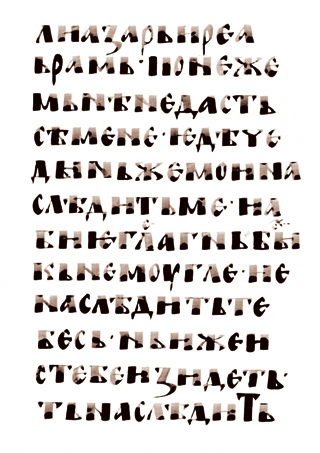 лиазарьиреа
врамь·понеже
мьнѣнедасть
сѣмене·ѥдѣче
дьıньжемоина
слѣдитьме·иа
биѥглⷭ҇агн҃ьбьı
кьнемоугле·не
наслѣдитьте
бесь·ньижеи
стебеизидеть·
тьнаслѣдить